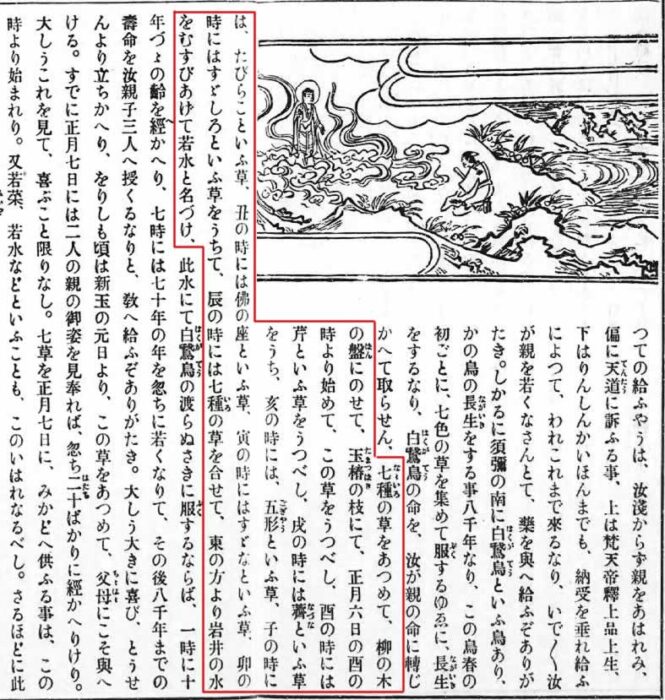 つての給ふやうは、汝淺からず親をあはれみ、
偏に天道に訴ふる事、上は梵天帝釋上品上生、
下はりんしんかいほんまでも、納受を垂れ給ふ
によつて、われこれまで來るなり、いで〳〵汝
が親を若くなさんとて、藥を與へ給ふぞありが
たき。しかるに須彌の南に白鵞鳥といふ鳥あり、
かの鳥の長生をする事八千年なり、この鳥春の
初ごとに、七色の草を集めて服するゆゑに、長生
をするなり、白鵞鳥の命を、汝が親の命に轉じ
かへて取らせん、七種の草をあつめて、柳の木
の盤にのせて、玉椿の枝にて、正月六日の酉の
時より始めて、この草をうつべし、酉の時には
芹といふ草をうつべし、戌の時には薺といふ草
をうち、亥の時には、五形といふ草、子の時に
は、たびらこといふ草、丑の時には佛の座といふ草、寅の時にはすゞなといふ草、卯の
時にはすゞしろといふ草をうちて、辰の時には七種の草を合せて、東の方より岩井の水
をむすびあげて若水と名づけ、此水にて白鵞鳥の渡らぬさきに服するならば、一時に十
年づゝの齡を經かへり、七時には七十年の年を忽ちに若くなりて、その後八千年までの
壽命を汝親子三人へ授くるなりと、敎へ給ふぞありがたき。大しう大きに喜び、とうせ
んより立ちかへり、をりしも頃は新玉の元日より、この草をあつめて、父母にこそ與へ
ける。すでに正月七日には二人の親の御姿を見奉れば、忽ち二十ばかりに經かへりけり。
大しうこれを見て、喜ぶこと限りなし。七草を正月七日に、みかどへ供ふる事は、この
時より始まれり。又若菜、若水などといふことも、このいはれなるべし。さるほどに此